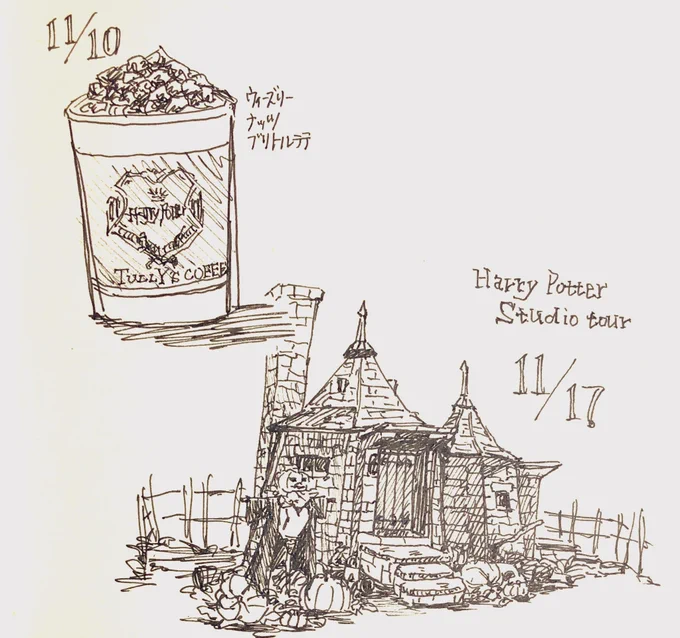 11/10
ウィーズリー
ナッツ
ブリトルラテ
Harry Potter
TULLY'S COFFEE
Harry Potter
Studio tour
11/17